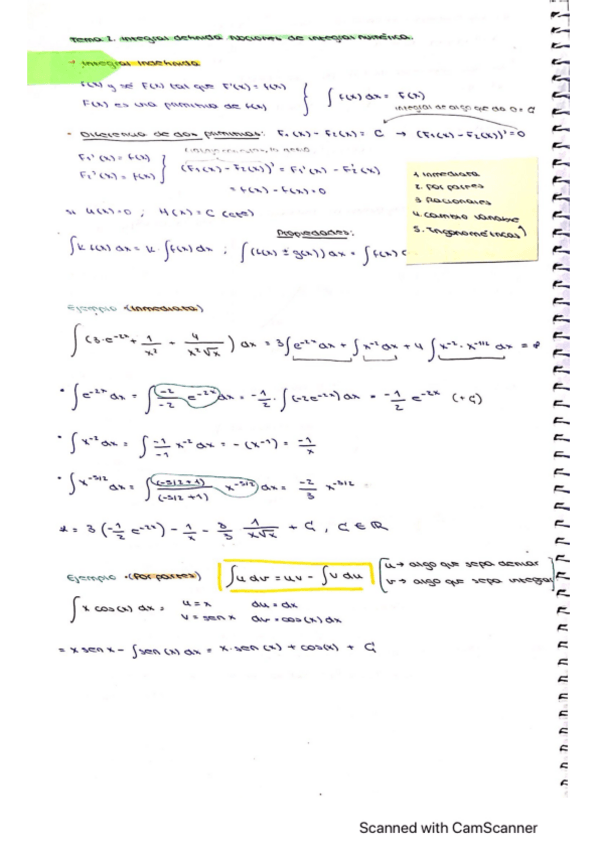 Tema 2. Integral definida. Nociones de integral numérica.
→ Integral Indefinida
f(x) y sé F(x) tal que F'(x) = f(x)
F(x) es una primitiva de f(x)
∫ f(x) dx = F(x)
integral de algo que da 0 = C
- Diferencia de dos primitivas: F₁(x) - F₂(x) = C → (F₁(x) - F₂(x))' = 0
F₁'(x) = f(x)
F₂'(x) = f(x)
(F₁(x) - F₂(x))' = F₁'(x) - F₂'(x)
= f(x) - f(x) = 0
si H'(x) = 0 ; H(x) = C (cte)
1. Inmediata
2. Por partes
3. Racionales
4. Cambio variable
5. Trigonométricas
Propiedades:
∫ k f(x) dx = k ∫ f(x) dx ; ∫ (f(x) ± g(x)) dx = ∫ f(x)
Ejemplo (Inmediata)
∫ (3·e^-2x + 1/x² + 4/x²√x) dx = 3∫ e^-2x dx + ∫ x^-2 dx + 4 ∫ x^-2 · x^-1/2 dx = *
• ∫ e^-2x dx = ∫ -2/-2 e^-2x dx = -1/2 · ∫ (-2e^-2x) dx = -1/2 e^-2x (+C)
• ∫ x^-2 dx = ∫ -1/-1 x^-2 dx = -(x^-1) = -1/x
• ∫ x^-5/2 dx = ∫ (-5/2+1)/(-5/2+1) x^-5/2 dx = -2/3 x^-3/2
* = 3 (-1/2 e^-2x) - 1/x - 8/3 1/x√x + C, C ∈ ℝ
Ejemplo (Por partes)
∫ u dv = uv - ∫ v du
u → algo que sepa derivar
v → algo que sepa integrar
∫ x cos(x) dx = u = x du = dx
v = sen x dv = cos(x) dx
= x sen x - ∫ sen(x) dx = x·sen(x) + cos(x) + C
Scanned with CamScanner